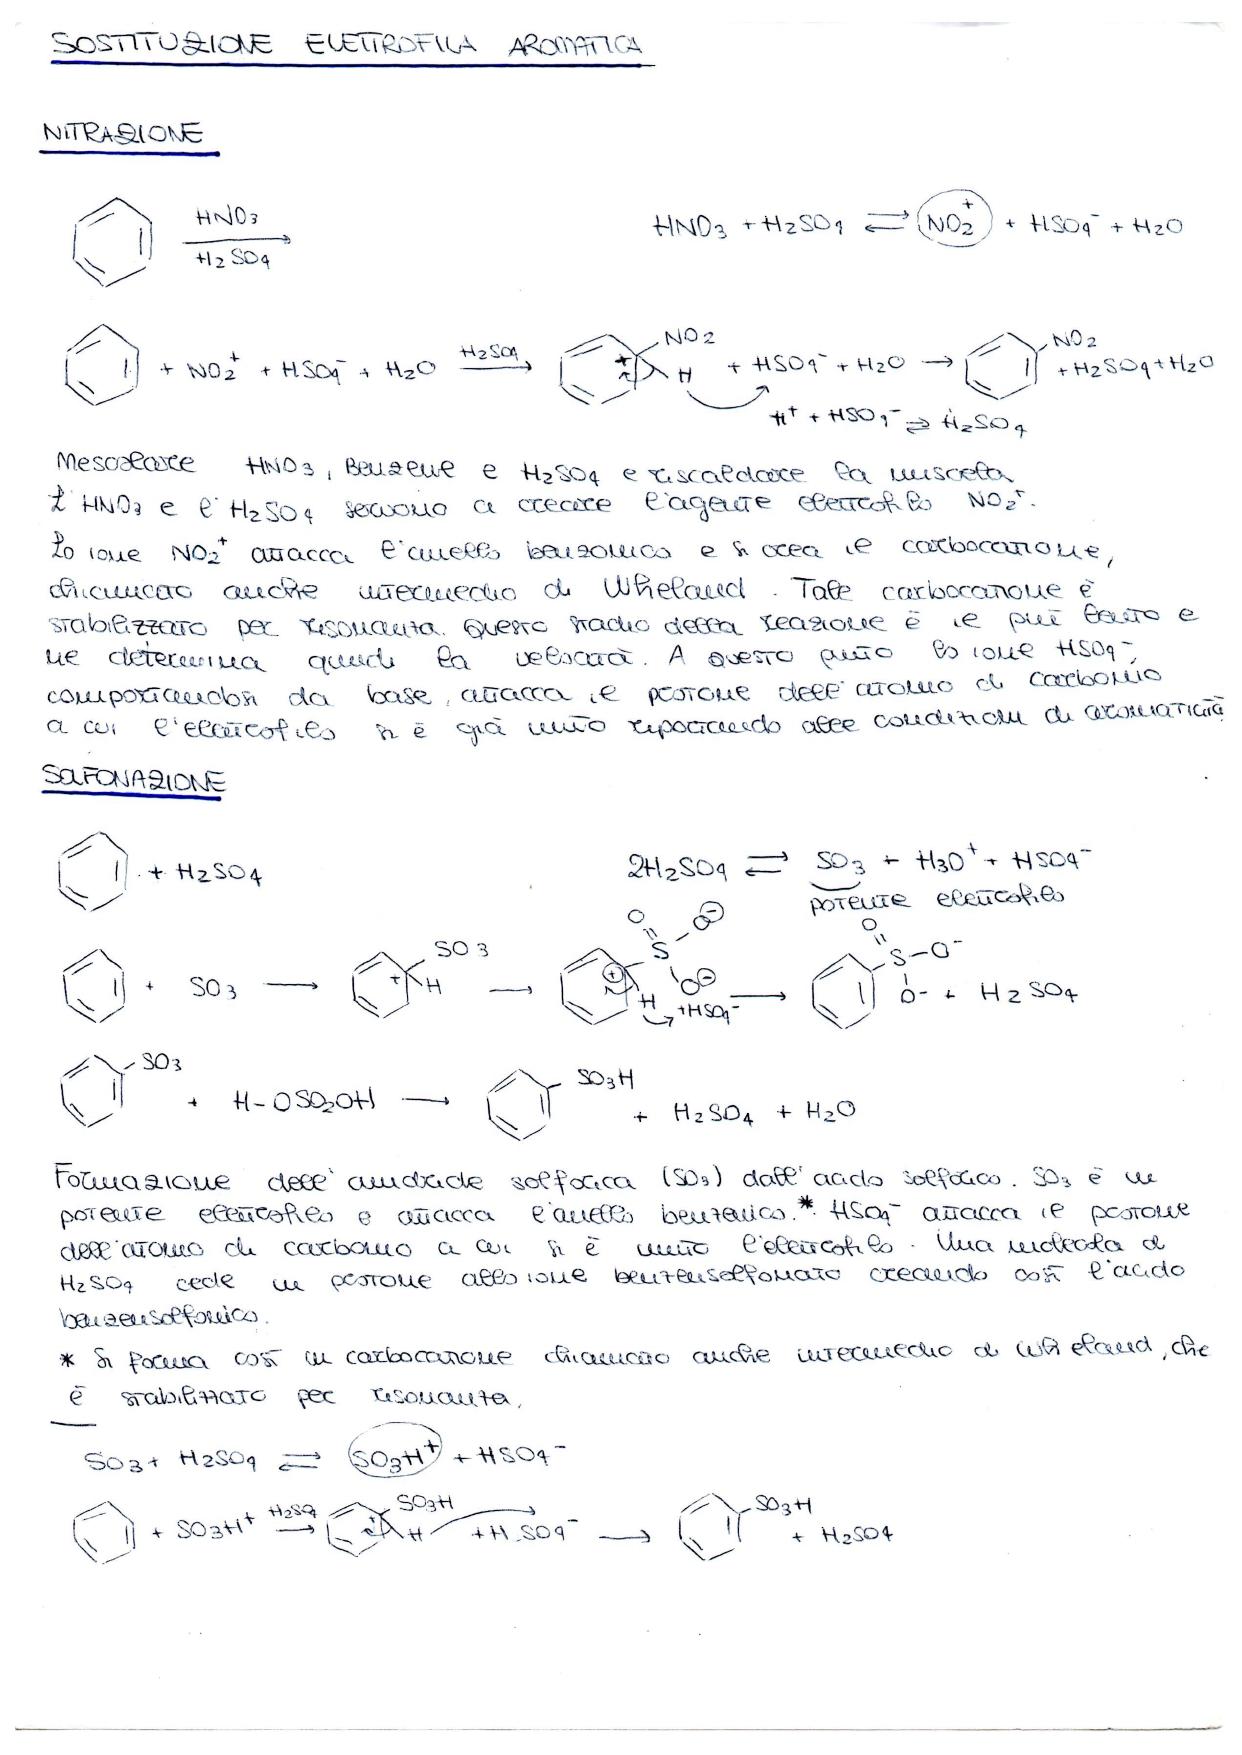 SOSTITUZIONE ELETTROFILA AROMATICA
NITRAZIONE
HNO3
H2SO4
HNO3 + H2SO4 ⇌ NO2+ + HSO4- + H2O
+ NO2+ + HSO4- + H2O H2SO4 → NO2 H + HSO4- + H2O → NO2 + H2SO4 + H2O
H+ + HSO4- ⇌ H2SO4
Mescolare HNO3, Benzene e H2SO4 e riscaldare la miscela.
L'HNO3 e l'H2SO4 servono a creare l'agente elettrofilo NO2+.
Lo ione NO2+ attacca l'anello benzenico e si crea il carbocatione,
chiamato anche intermedio di Wheland. Tale carbocatione è
stabilizzato per risonanza. Questo stadio della reazione è il più lento e
ne determina quindi la velocità. A questo punto lo ione HSO4-,
comportandosi da base, attacca il protone dell'atomo di carbonio
a cui l'elettrofilo si è già unito riportando alle condizioni di aromaticità
SOLFONAZIONE
+ H2SO4
2H2SO4 ⇌ SO3 + H3O+ + HSO4-
potente elettrofilo
+ SO3 → SO3 + H → + O S O- O- H +HSO4- → O S-O- O- + H2SO4
SO3 + H-OSO2OH → SO3H + H2SO4 + H2O
Formazione dell'anidride solforica (SO3) dall'acido solforico. SO3 è un
potente elettrofilo e attacca l'anello benzenico.* HSO4- attacca il protone
dell'atomo di carbonio a cui si è unito l'elettrofilo. Una molecola di
H2SO4 cede un protone allo ione benzensolfonato creando così l'acido
benzensolfonico.
* Si forma così un carbocatione chiamato anche intermedio di Wheland, che
è stabilizzato per risonanza.
SO3 + H2SO4 ⇌ SO3H+ + HSO4-
+ SO3H+ H2SO4 → SO3H + H + HSO4- → SO3H + H2SO4